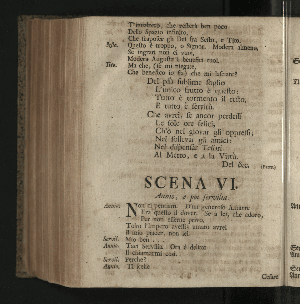 T'innoltro, che resterà ben poco
Dello spazio infinito,
Che frapose gli Dei fra Sesto, e Tito.
Sesto. Questo è troppo, o Signor. Modera almeno,
Se ingrati non ci vuoi,
Modera Augusto i benefici tuoi.
Tito. Ma che, (se mi niegate,
Che benefico io sia) che mi lasciate?
Del più sublime soglio
L'unico frutto è questo:
Tutto è tormento il resto,
E tutto è servitù.
Che avrei, se ancor perdessi
Le sole ore felici,
Ch'ò nel giovar gli oppressi;
Nel sollevar gli amici;
Nel dispensar Tesori
Al Merto, e a la Virtù.
Del &c. (Parte.)
SCENA VI.
Annio, e poi Servilia.
Annio. Non ci pentiam. D'un generoso Amante
Era questo il dover. Se a lei, che adoro,
Per non esserne privo,
Tolto l'Impero avessi, amato avrei
Il mio piacer, non lei.
Servil. Mio ben . . .
Annio. Taci Servilia. Ora è delitto
Il chiamarmi così.
Servil. Perchè?
Annio. Ti scelse
Cesare